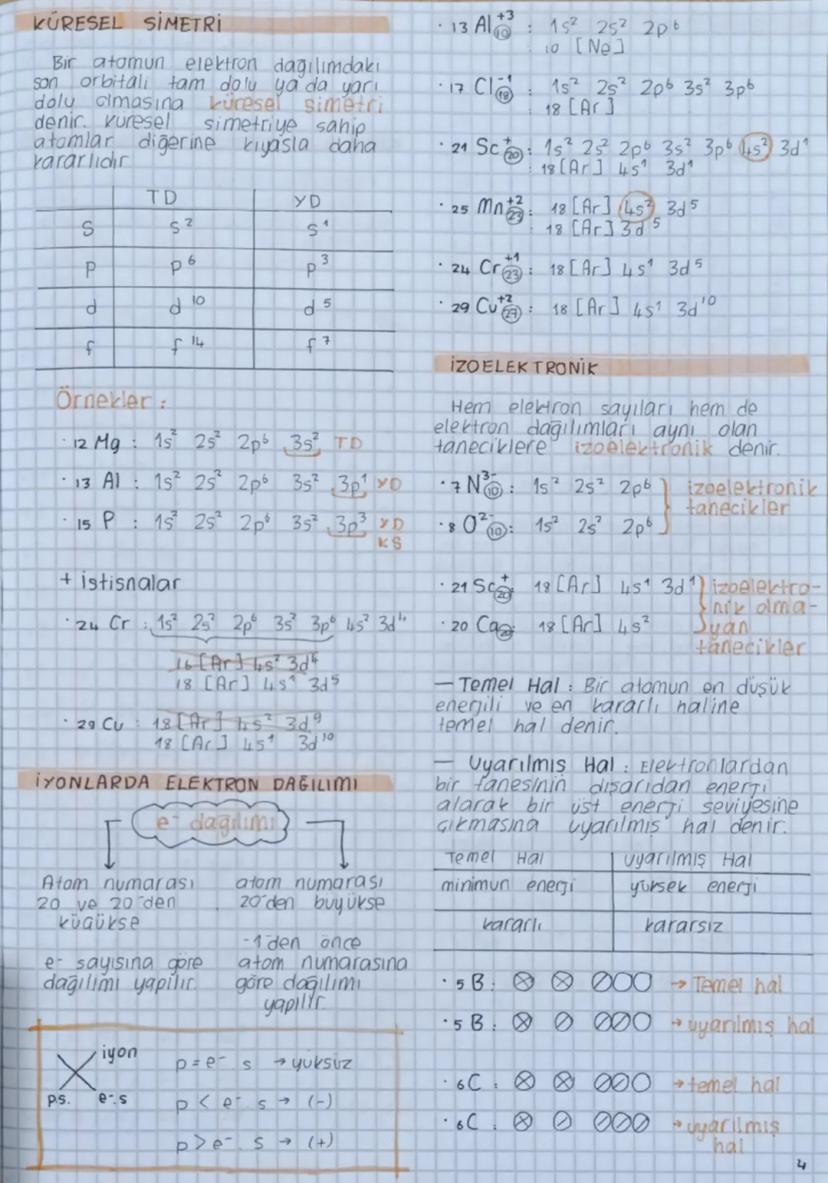 KÜRESEL SİMETRİ
Bir atomun elektron dağılımdaki
son orbitali tam dolu ya da yarı
dolu olmasına küresel simetri
denir. Küresel simetriye sahip
atomlar diğerine kıyasla daha
kararlıdır
TD YD
S s² s¹
p p⁶ p³
d d¹⁰ d⁵
f f¹⁴ f⁷
Örnekler :
· ₁₂Mg : 1s² 2s² 2p⁶ 3s² TD
· ₁₃Al : 1s² 2s² 2p⁶ 3s² 3p¹ YD
· ₁₅P : 1s² 2s² 2p⁶ 3s² 3p³ YD
KS
+ istisnalar
· ₂₄Cr : 1s² 2s² 2p⁶ 3s² 3p⁶ 4s² 3d⁴
16 [Ar] 4s² 3d⁴
18 [Ar] 4s¹ 3d⁵
· ₂₉Cu : 18 [Ar] 4s² 3d⁹
18 [Ar] 4s¹ 3d¹⁰
İYONLARDA ELEKTRON DAĞILIMI
e⁻ dağılımı
Atom numarası
20 ve 20'den
küçükse
e⁻ sayısına göre
dağılımı yapılır.
atom numarası
20'den büyükse
-1'den önce
atom numarasına
göre dağılımı
yapılır.
iyon
p.s. e⁻.s
p = e⁻ s → yüksüz
p < e⁻ s → (-)
p > e⁻ s → (+)
· ₁₃Al⁺³ (10) : 1s² 2s² 2p⁶
10 [Ne]
· ₁₇Cl⁻¹ (18) : 1s² 2s² 2p⁶ 3s² 3p⁶
18 [Ar]
· ₂₁Sc⁺ (20) : 1s² 2s² 2p⁶ 3s² 3p⁶ 4s² 3d¹
18 [Ar] 4s¹ 3d¹
· ₂₅Mn⁺² (23) : 18 [Ar] 4s² 3d⁵
18 [Ar] 3d⁵
· ₂₄Cr⁺¹ (23) : 18 [Ar] 4s¹ 3d⁵
· ₂₉Cu⁺² (27) : 18 [Ar] 4s¹ 3d¹⁰
İZOELEKTRONİK
Hem elektron sayıları hem de
elektron dağılımları aynı olan
taneciklere izoelektronik denir.
· ₇N³⁻ (10) : 1s² 2s² 2p⁶ izoelektronik
tanecikler
· ₈O²⁻ (10) : 1s² 2s² 2p⁶
· ₂₁Sc⁺ (20) : 18 [Ar] 4s¹ 3d¹ izoelektro-
nik olma-
· ₂₀Ca (20) : 18 [Ar] 4s² yan
tanecikler
— Temel Hal : Bir atomun en düşük
enerjili ve en kararlı haline
temel hal denir.
— Uyarılmış Hal : Elektronlardan
bir tanesinin dışarıdan enerji
alarak bir üst enerji seviyesine
çıkmasına uyarılmış hal denir.
Temel Hal Uyarılmış Hal
minimun enerji yüksek enerji
kararlı kararsız
· ₅B : → Temel hal
· ₅B : → uyarılmış hal
· ₆C : → temel hal
· ₆C : → uyarılmış
hal
4